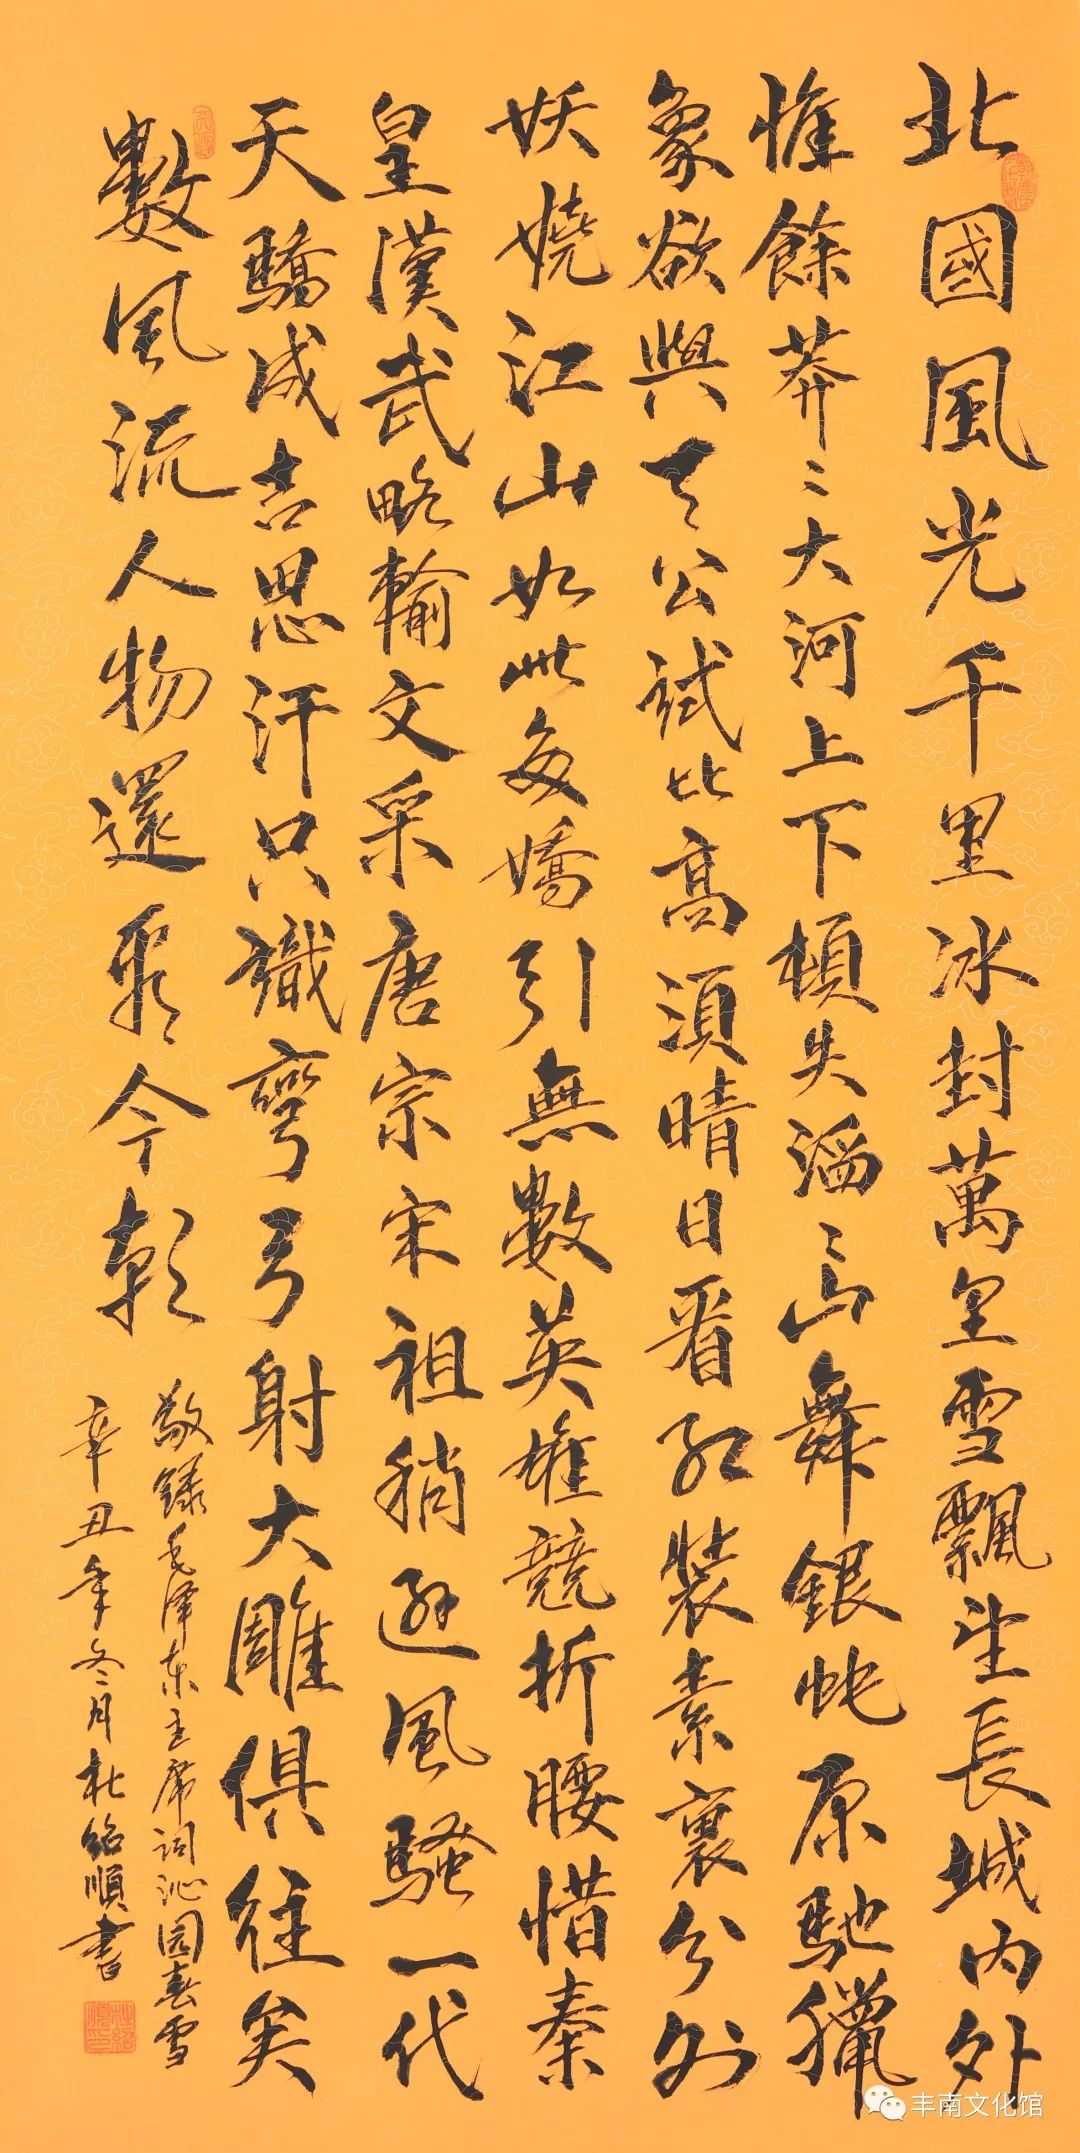 北國風光千里冰封萬里雪飄望長城内外
惟餘莽〻大河上下頓失滔〻山舞銀蛇原馳獵
象欲與天公試比高須晴日看紅裝素裹分外
妖嬈江山如此多嬌引無數英雄競折腰惜秦
皇漢武略輸文采唐宗宋祖稍遜風騷一代
天驕成吉思汗只識彎弓射大雕俱往矣
數風流人物還看今朝
敬録毛泽东主席词沁园春雪
辛丑年冬月杜绍順書
丰南文化馆